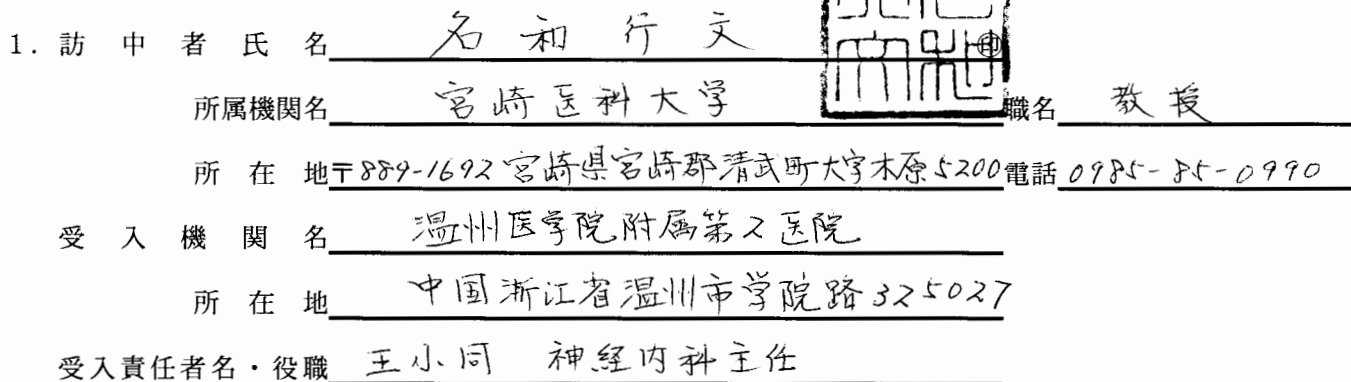 1. 訪中者氏名 名和行文 ㊞
所属機関名 宮崎医科大学 職名 教授
所在地 〒889-1692 宮崎県宮崎郡清武町大字木原5200 電話 0985-85-0990
受入機関名 温州医学院附属第2医院
所在地 中国浙江省温州市学院路325027
受入責任者名・役職 王小同 神経内科主任